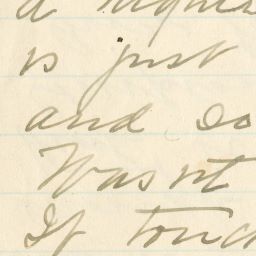 a
is just
and so
Wasnt
If touch